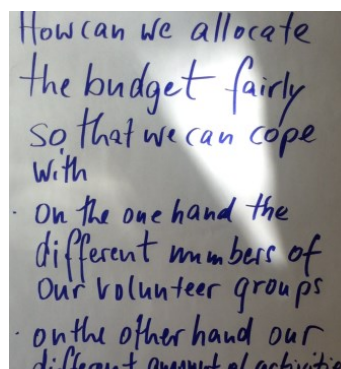 How can we allocate
the budget fairly
so that we can cope
with
· on the one hand the
different numbers of
our volunteer groups
· on the other hand our
different amount of activitie